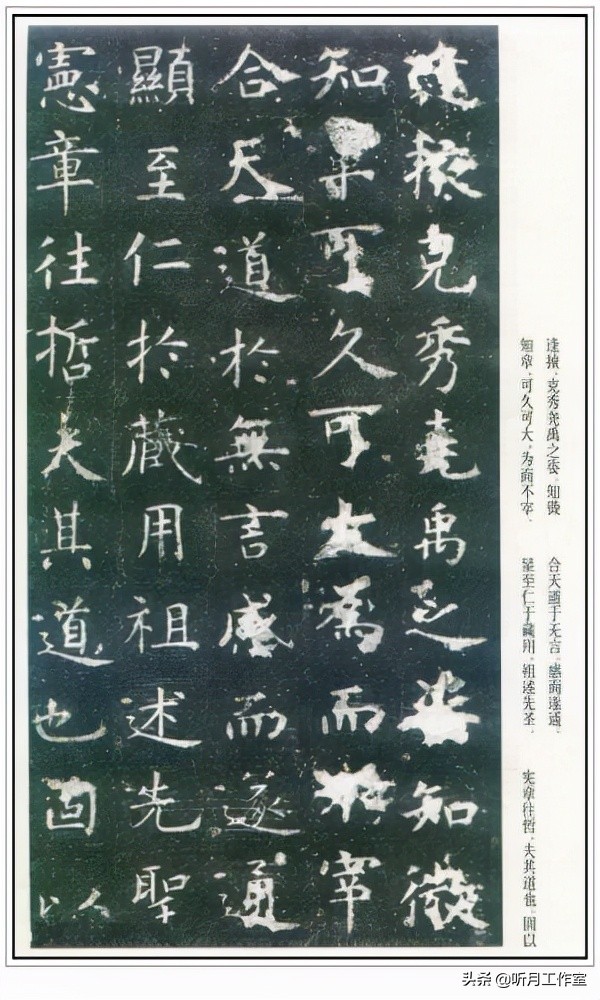 逢掖克秀堯禹之姿知微
知章可久可大為而不宰
合天道於無言感而遂通
顯至仁於藏用祖述先聖
憲章往哲夫其道也固以
逢掖，克秀尧禹之姿，知微
知章，可久可大，为而不宰，
合天道于无言，感而遂通，
显至仁于藏用，祖述先圣，
宪章往哲，夫其道也，固以
头条 @听月工作室